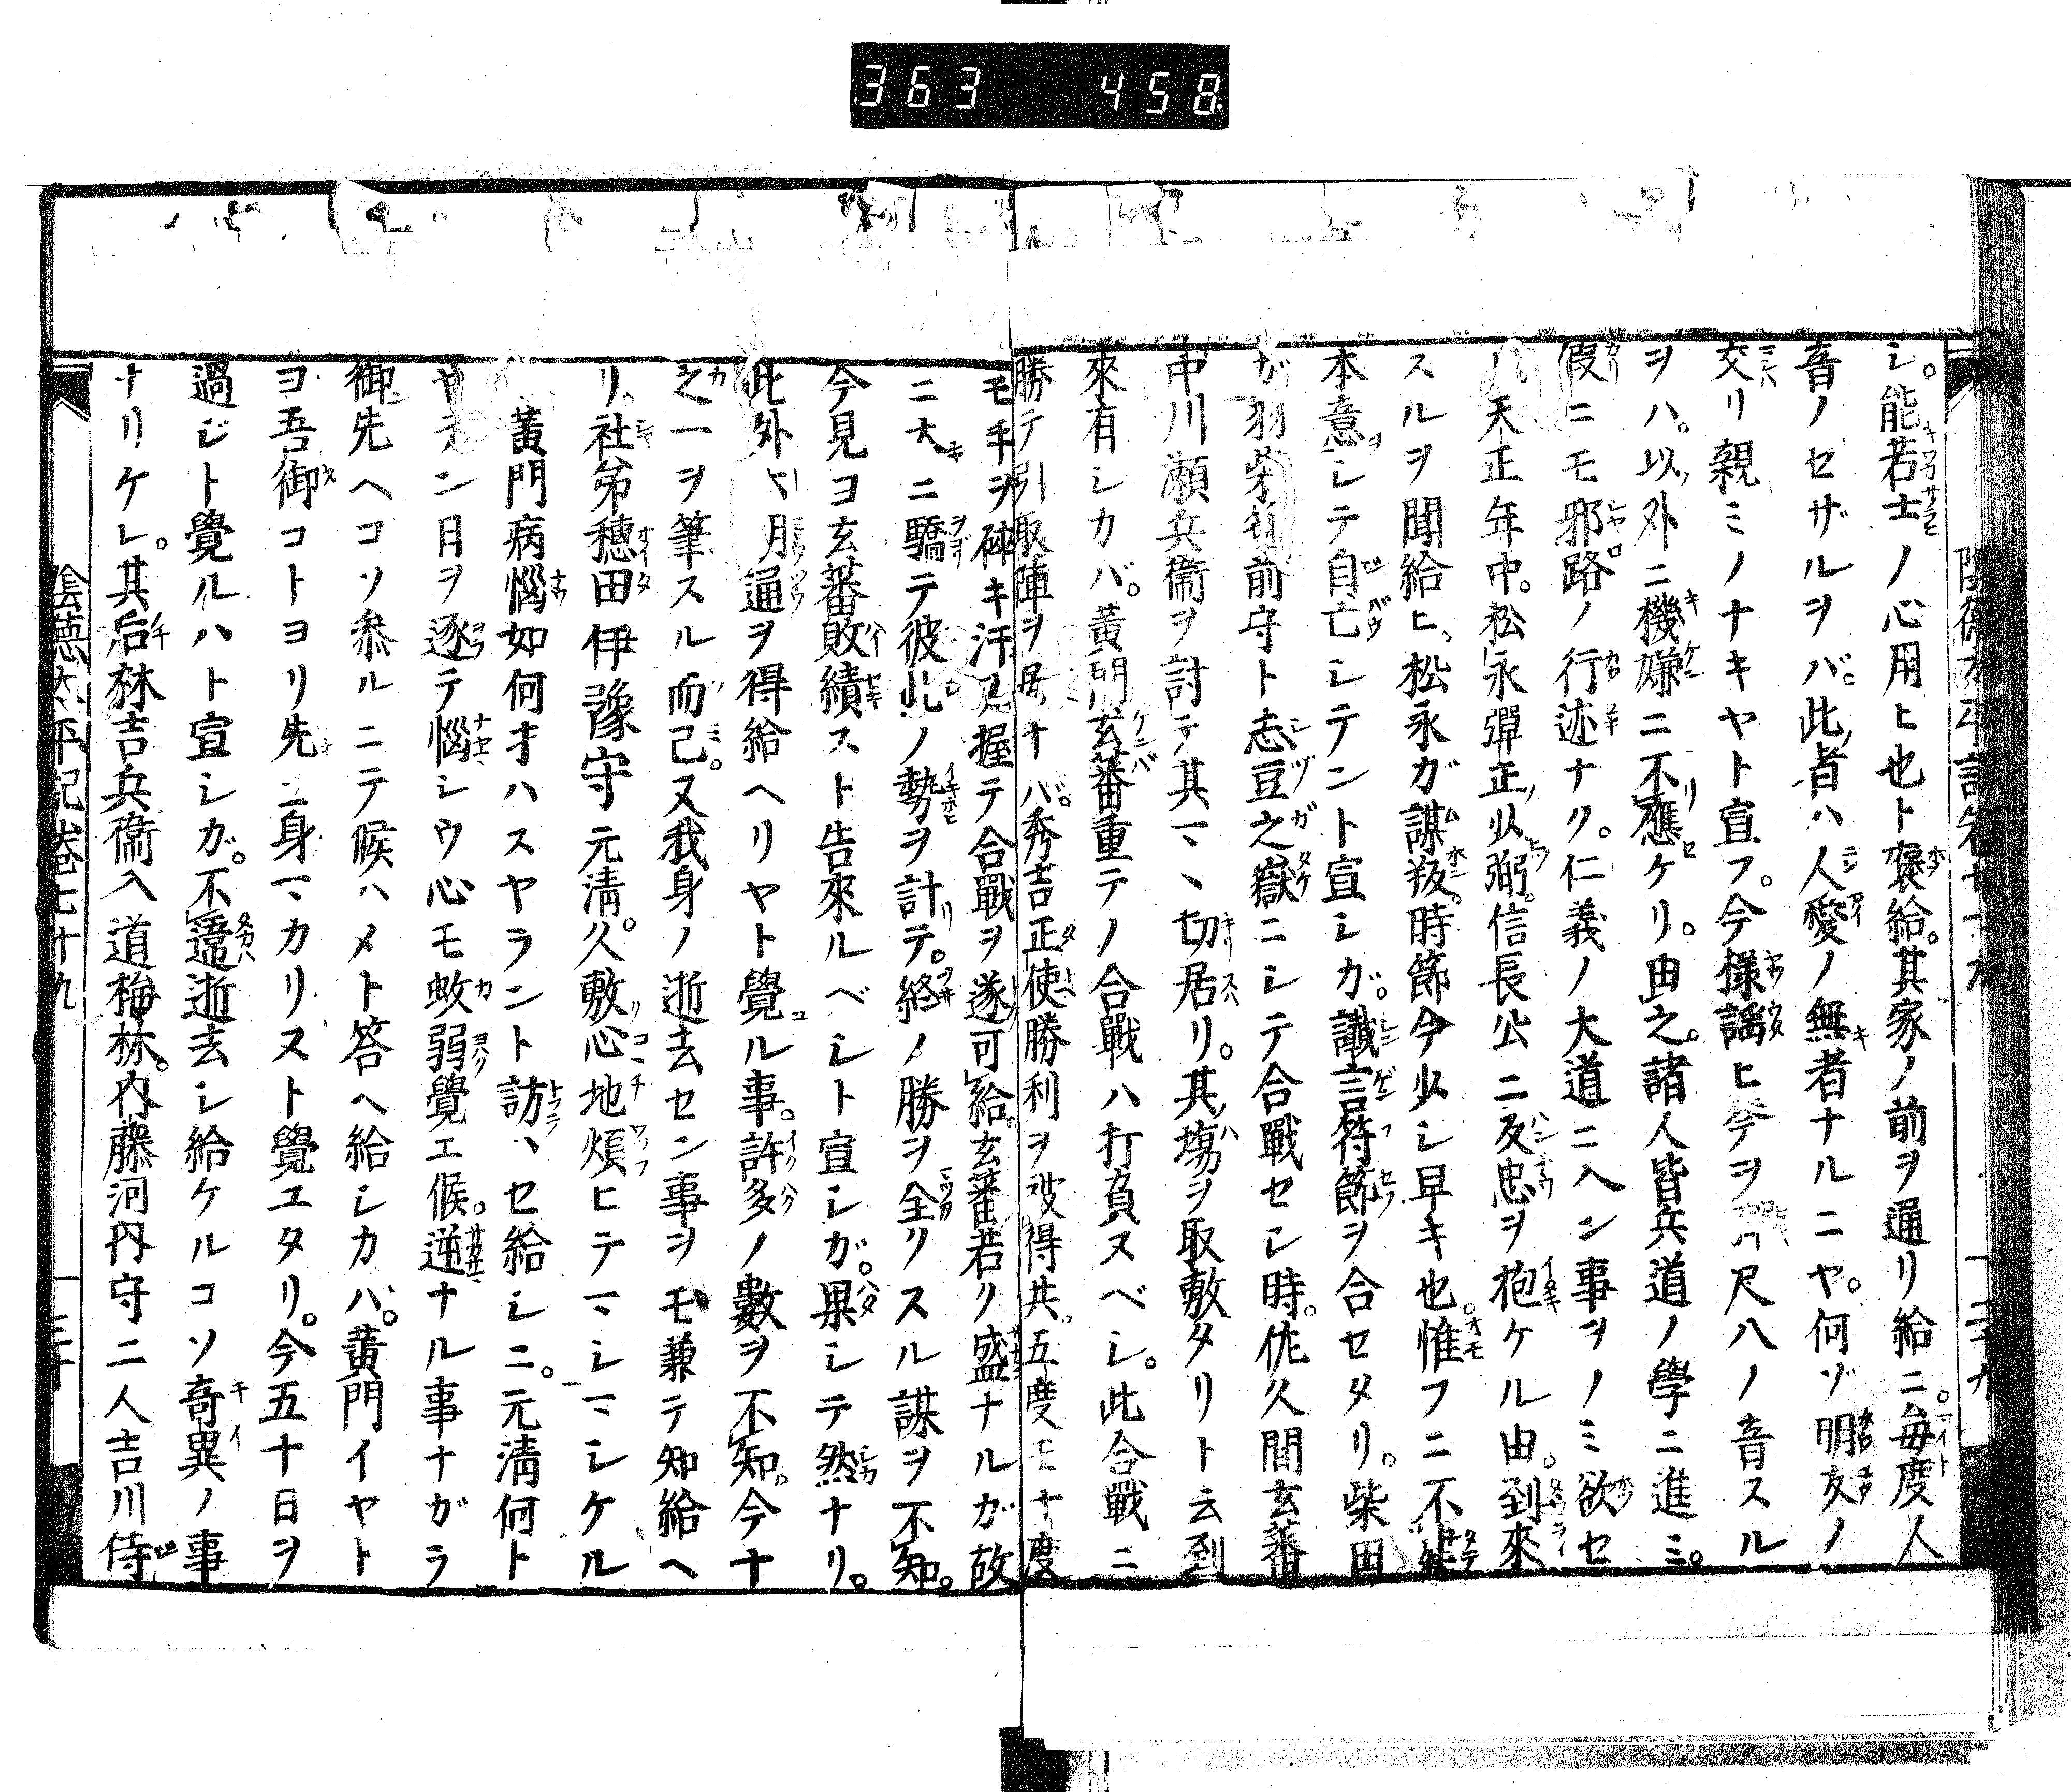 363 458
シ。能若士ノ心用ヒ也ト褒給。其家ノ前ヲ通リ給ニ。毎度人
音ノセザルヲバ。此者ハ人愛ノ無者ナルニヤ。何ゾ朋友ノ
交リ親ミノナキヤト宣フ。今様謡ヒ琴ヲ 尺八ノ音スル
ヲハ。以外ニ機嫌ニ不應ケリ。由之。諸人皆兵道ノ學ニ進ミ。
假ニモ邪路ノ行迹ナク。仁義ノ大道ニ入ン事ヲノミ欲セ
リ天正年中。松永彈正以弼。信長公ニ反忠ヲ抱ケル由。到來
スルヲ聞給ヒ。松永ガ謀叛。時節今少シ早キ也。惟フニ不
本意シテ自亡シテント宣シガ。讖言符節ヲ合セタリ。柴田
ガ羽柴筑前守ト志豆之嶽ニシテ合戰セシ時。佐久間玄蕃
中川瀬兵衞ヲ討テ其マヽ切居リ。其塲ヲ取敷タリト云到
來有シカバ。黄門玄蕃重テノ合戰ハ打負スベシ。此合戰ニ
勝テ引取陣ヲ居ナバ。秀吉正使勝利ヲ被得共。五度モ十度
モ手ヲ砕キ汗ヲ握テ合戰ヲ遂可給。玄蕃若リ盛ナルガ故
ニ大ニ驕テ彼此ノ勢ヲ計テ。終ノ勝ヲ全リスル謀ヲ不知。
今見ヨ玄蕃敗績スト告來ルベシト宣シガ。果シテ然ナリ。
此外ハ月通ヲ得給ヘリヤト覺ル事。許多ノ數ヲ不知。今十
之一ヲ筆スル而已。又我身ノ逝去セン事ヲモ兼テ知給ヘ
リ、社弟穂田伊豫守元清。久敷心地煩ヒテマシマシケル
黄門病惱如何オハスヤラント訪ハセ給シニ。元清何ト
ヤラン日ヲ逐テ惱シウ心モ蚊弱覺エ候。逆ナル事ナガラ
御先ヘコソ參ルニテ候ハメト答ヘ給シカバ。黄門イヤト
ヨ吾御コトヨリ先ニ身マカリヌト覺エタリ。今五十日ヲ
過ジト覺ルハト宣シガ。不違逝去シ給ケルコソ奇異ノ事
ナリケレ。其后林吉兵衞入道梅林。内藤河内守二人吉川侍
陰徳太平記巻七十九
三十